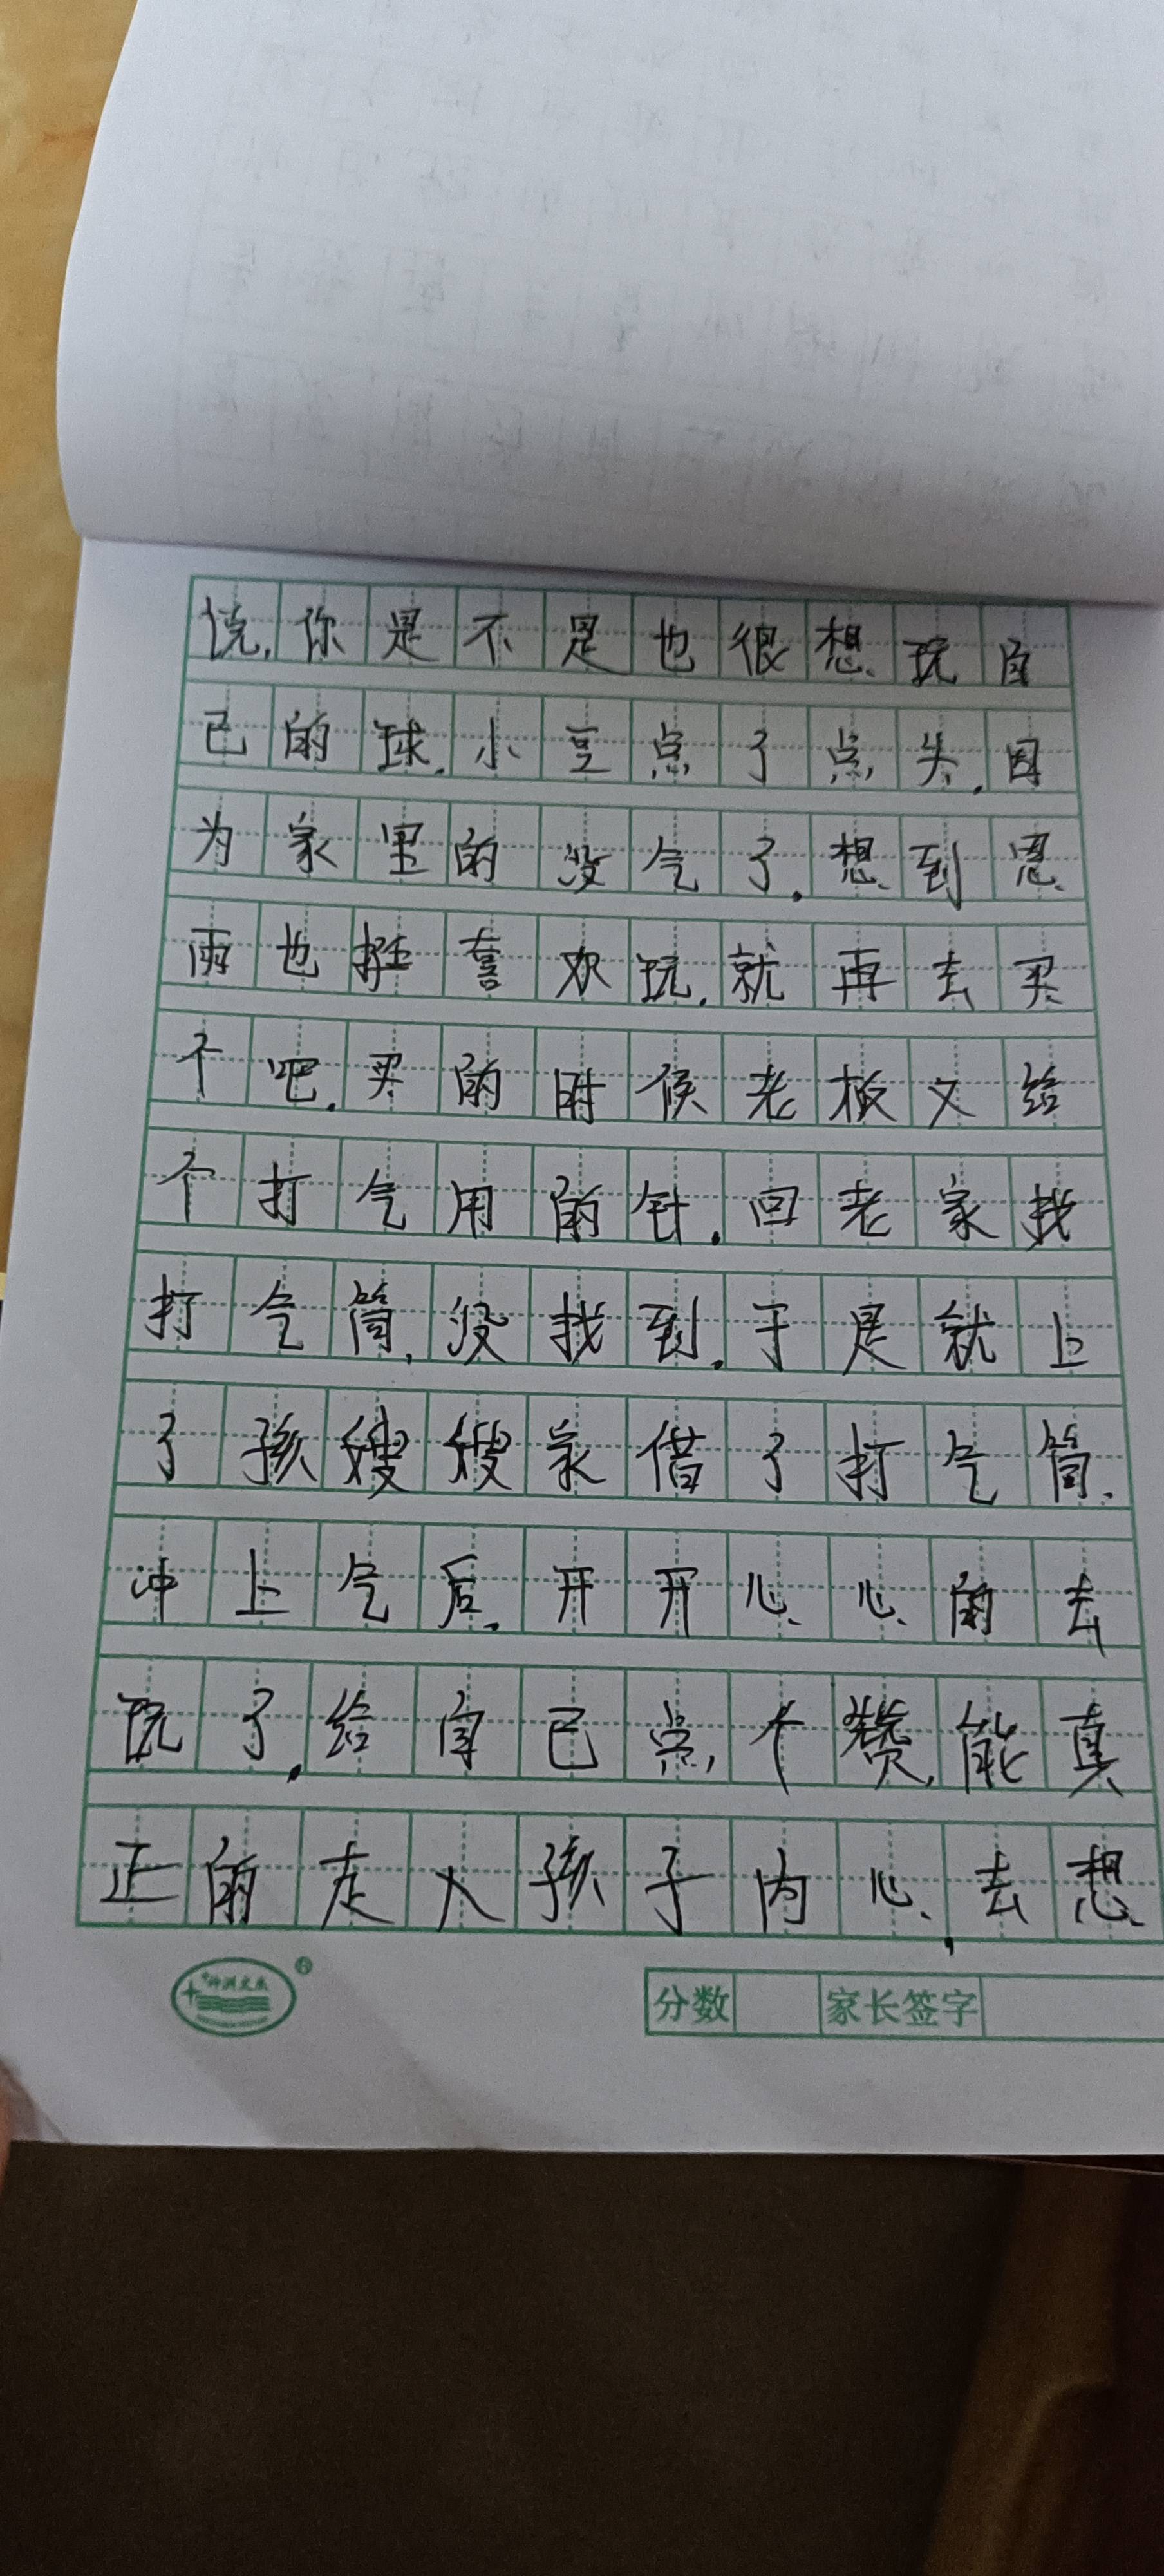 说,你是不是也很想玩自
己的球.小豆点了点头.因
为家里的没气了.想到恩
雨也挺喜欢玩.就再去买
个吧.买的时候老板又给
个打气用的针.回老家找
打气筒,没找到.于是就上
了孩嫂嫂家借了打气筒.
冲上气后.开开心心的去
玩了.给自己点个赞,能真
正的走入孩子内心,去想
神洲文教
分数 家长签字